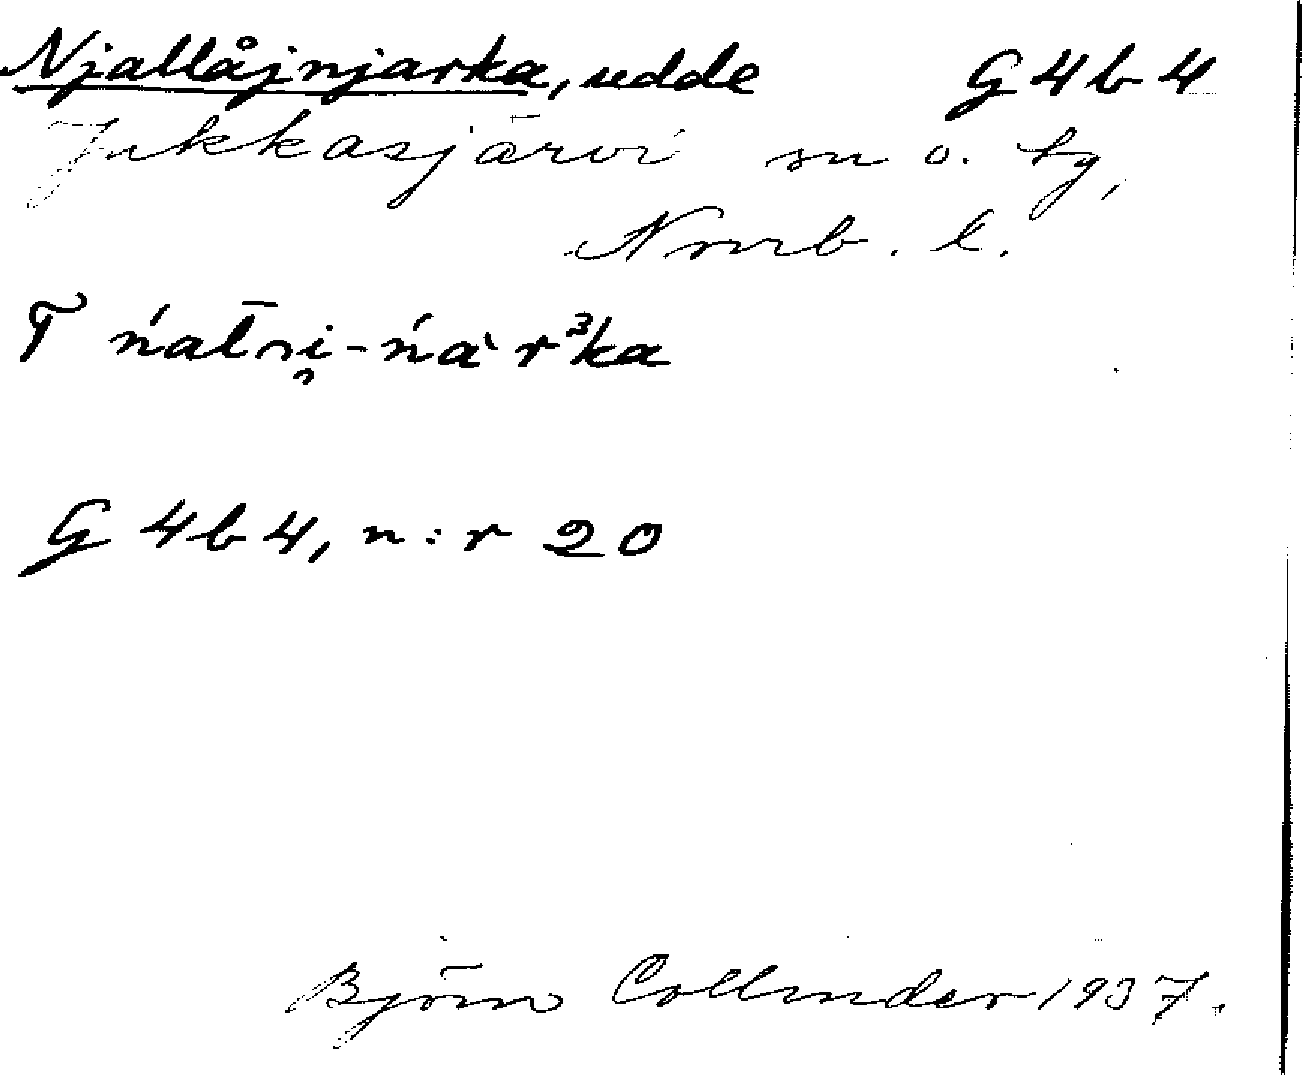 Njallåjnjarka, udde G4b4
Jukkasjärvi sn o. tg,
Nrrb. l.
G 4b4, n:r 20
Björn Collinder 1937.